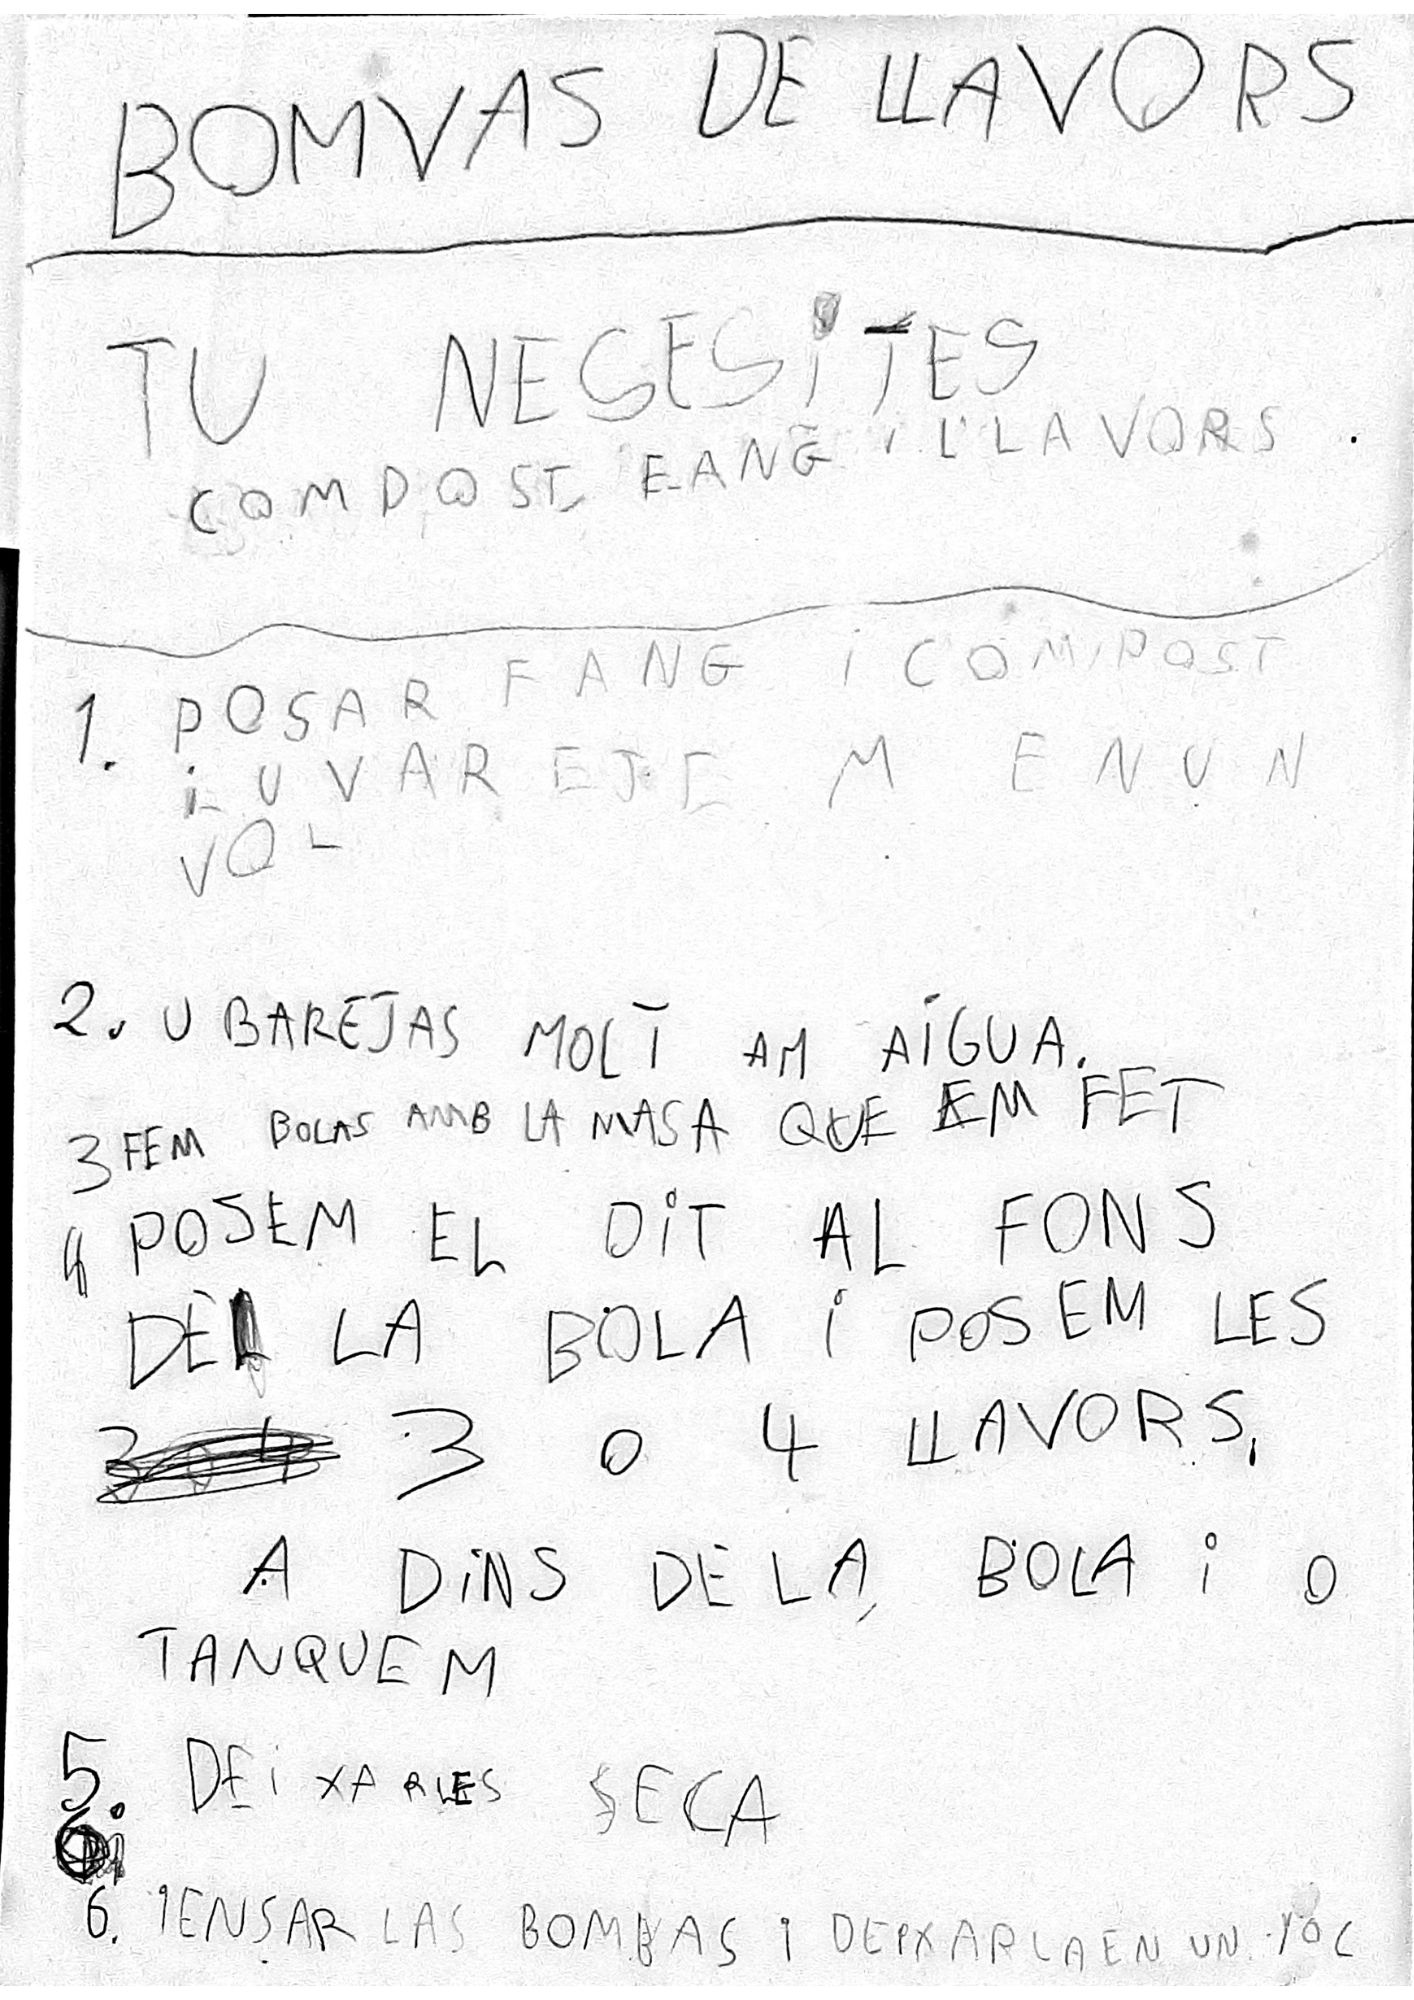 BOMVAS DE LLAVORS
TU NECESiTES
COMPOST, FANG i LLAVORS.
1. POSAR FANG i COMPOST
i U VAREJEM EN UN
VOL
2. U BAREJAS MOLT AM AiGUA.
3 FEM BOLAS AMB LA MASA QUE EM FET
4 POSEM EL DiT AL FONS
DE LA BOLA i POSEM LES
3 O 4 LLAVORS.
A DiNS DE LA BOLA i O
TANQUEM
5. DEiXARLES SECA
6. iENSAR LAS BOMBAS i DEiXARLA EN UN